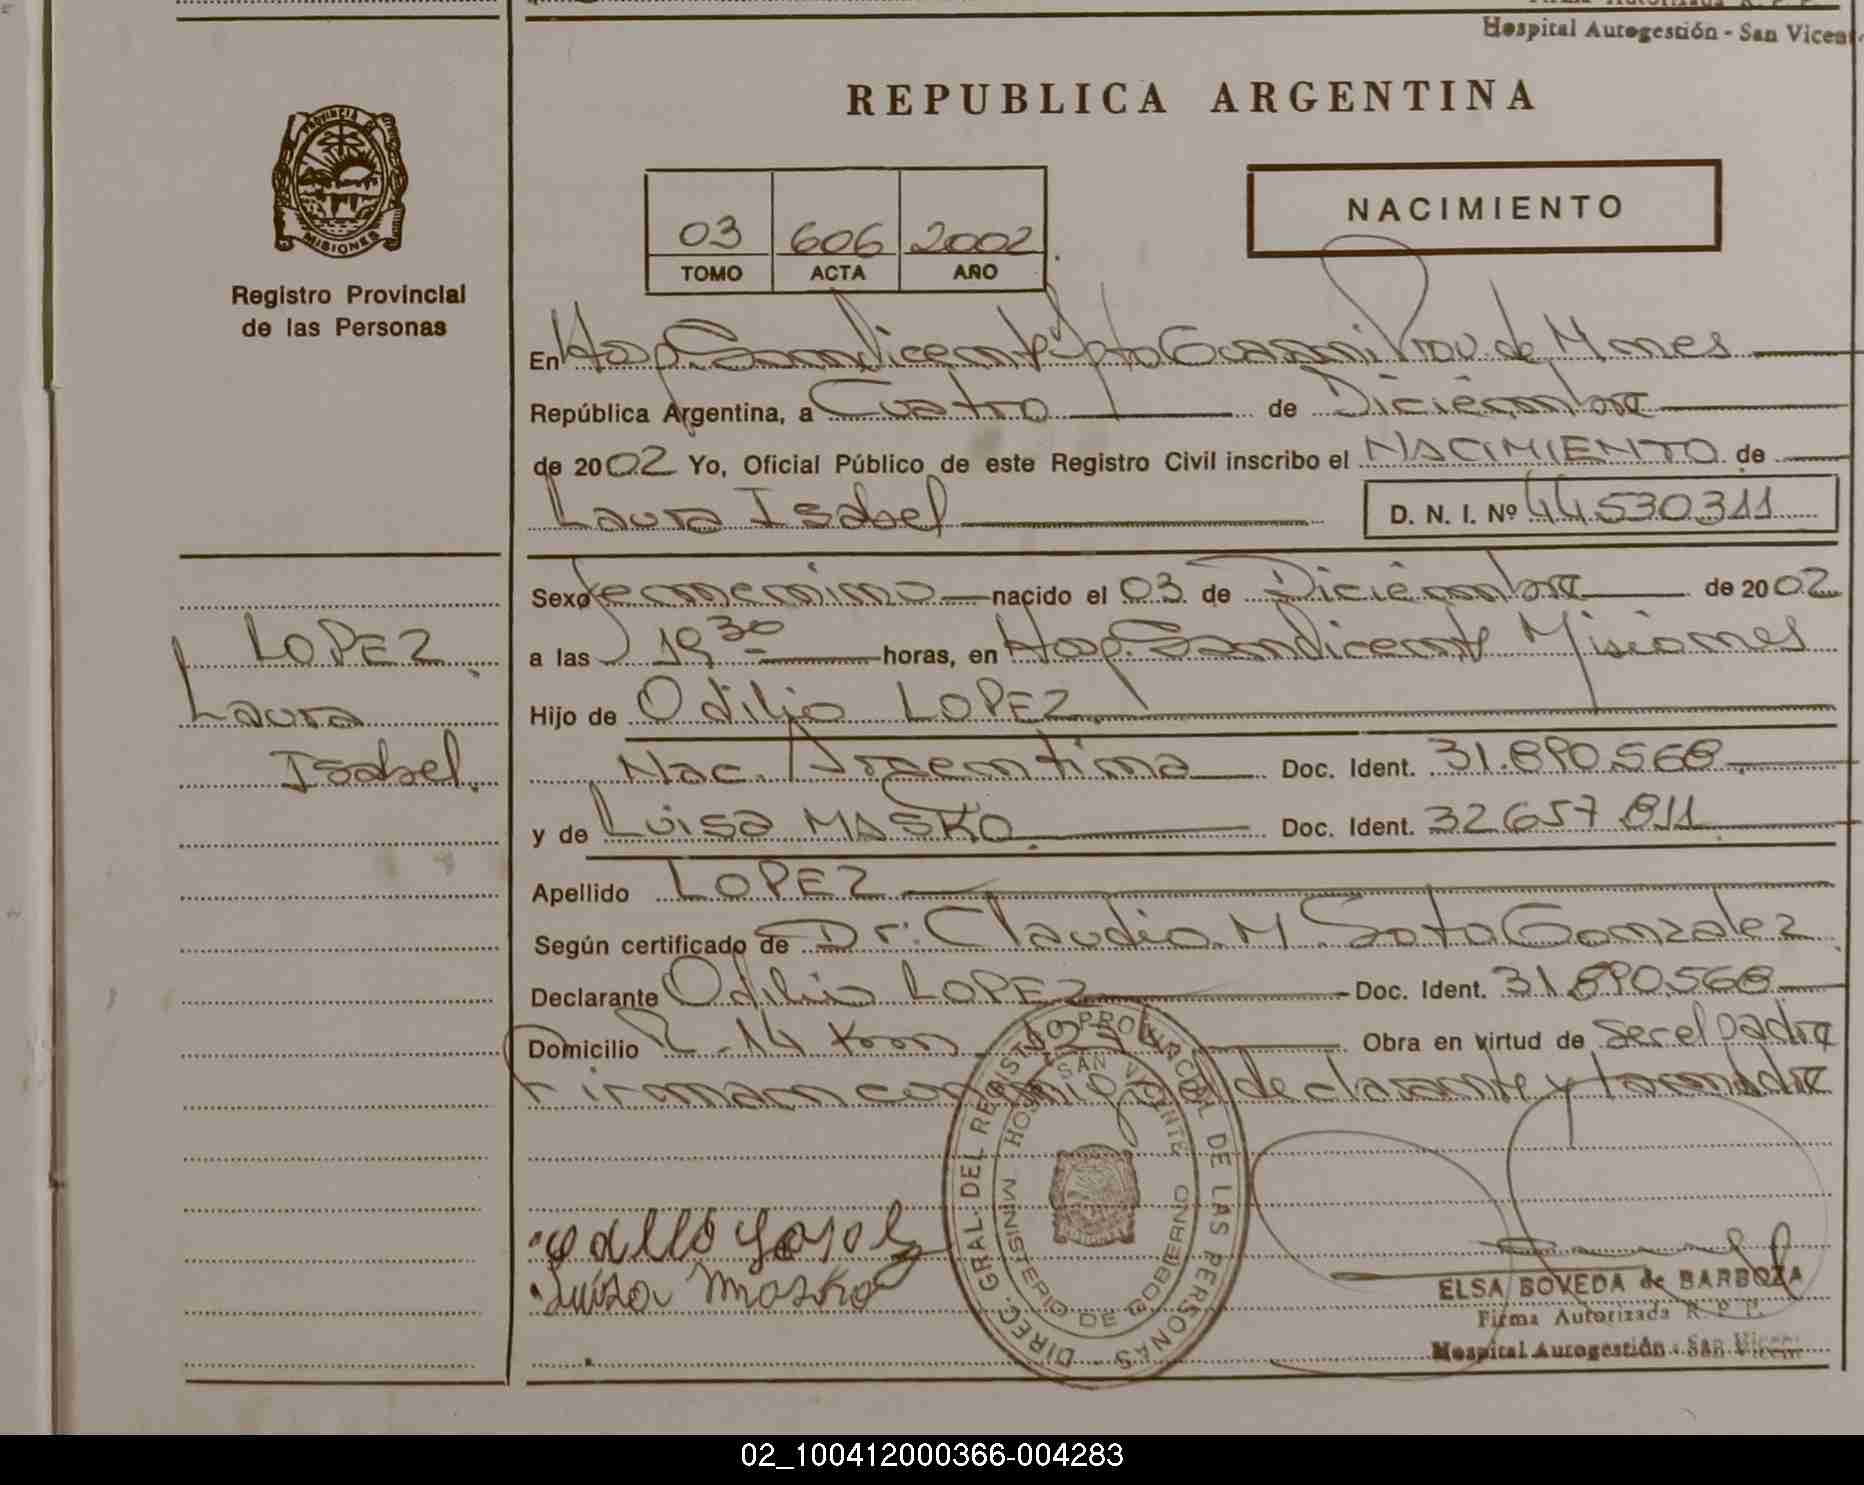 Hospital Autogestión - San Vicente
REPUBLICA ARGENTINA
PROVINCIA DE MISIONES
Registro Provincial
de las Personas
03 606 2002
TOMO ACTA AÑO
NACIMIENTO
En Hosp. San Vicente Dpto Guarani Prov. de Mnes
República Argentina, a Cuatro de Diciembre
de 2002 Yo, Oficial Público de este Registro Civil inscribo el NACIMIENTO de
Laura Isabel D. N. I. Nº 44530311
Sexo femenino nacido el 03 de Diciembre de 2002
a las 19 30 horas, en Hosp. San Vicente Misiones
Hijo de Odilio LOPEZ
Nac. Argentina Doc. Ident. 31.890.568
y de Luisa MASKO Doc. Ident. 32657 811
Apellido LOPEZ
Según certificado de Dr. Claudio M Soto Gonzalez
Declarante Odilio LOPEZ Doc. Ident. 31.890.568
Domicilio R. 14 Km Obra en virtud de ser el padre
Firman conmigo declarante y la madre
LOPEZ
Laura
Isabel
Luisa Masko
DIREC. GRAL. DEL REGISTRO PROVINCIAL DE LAS PERSONAS
HOSP. SAN VICENTE
MINISTERIO DE GOBIERNO
ELSA BOVEDA de BARBOZA
Firma Autorizada R. P. P.
Hospital Autogestión - San Vicente
02_100412000366-004283